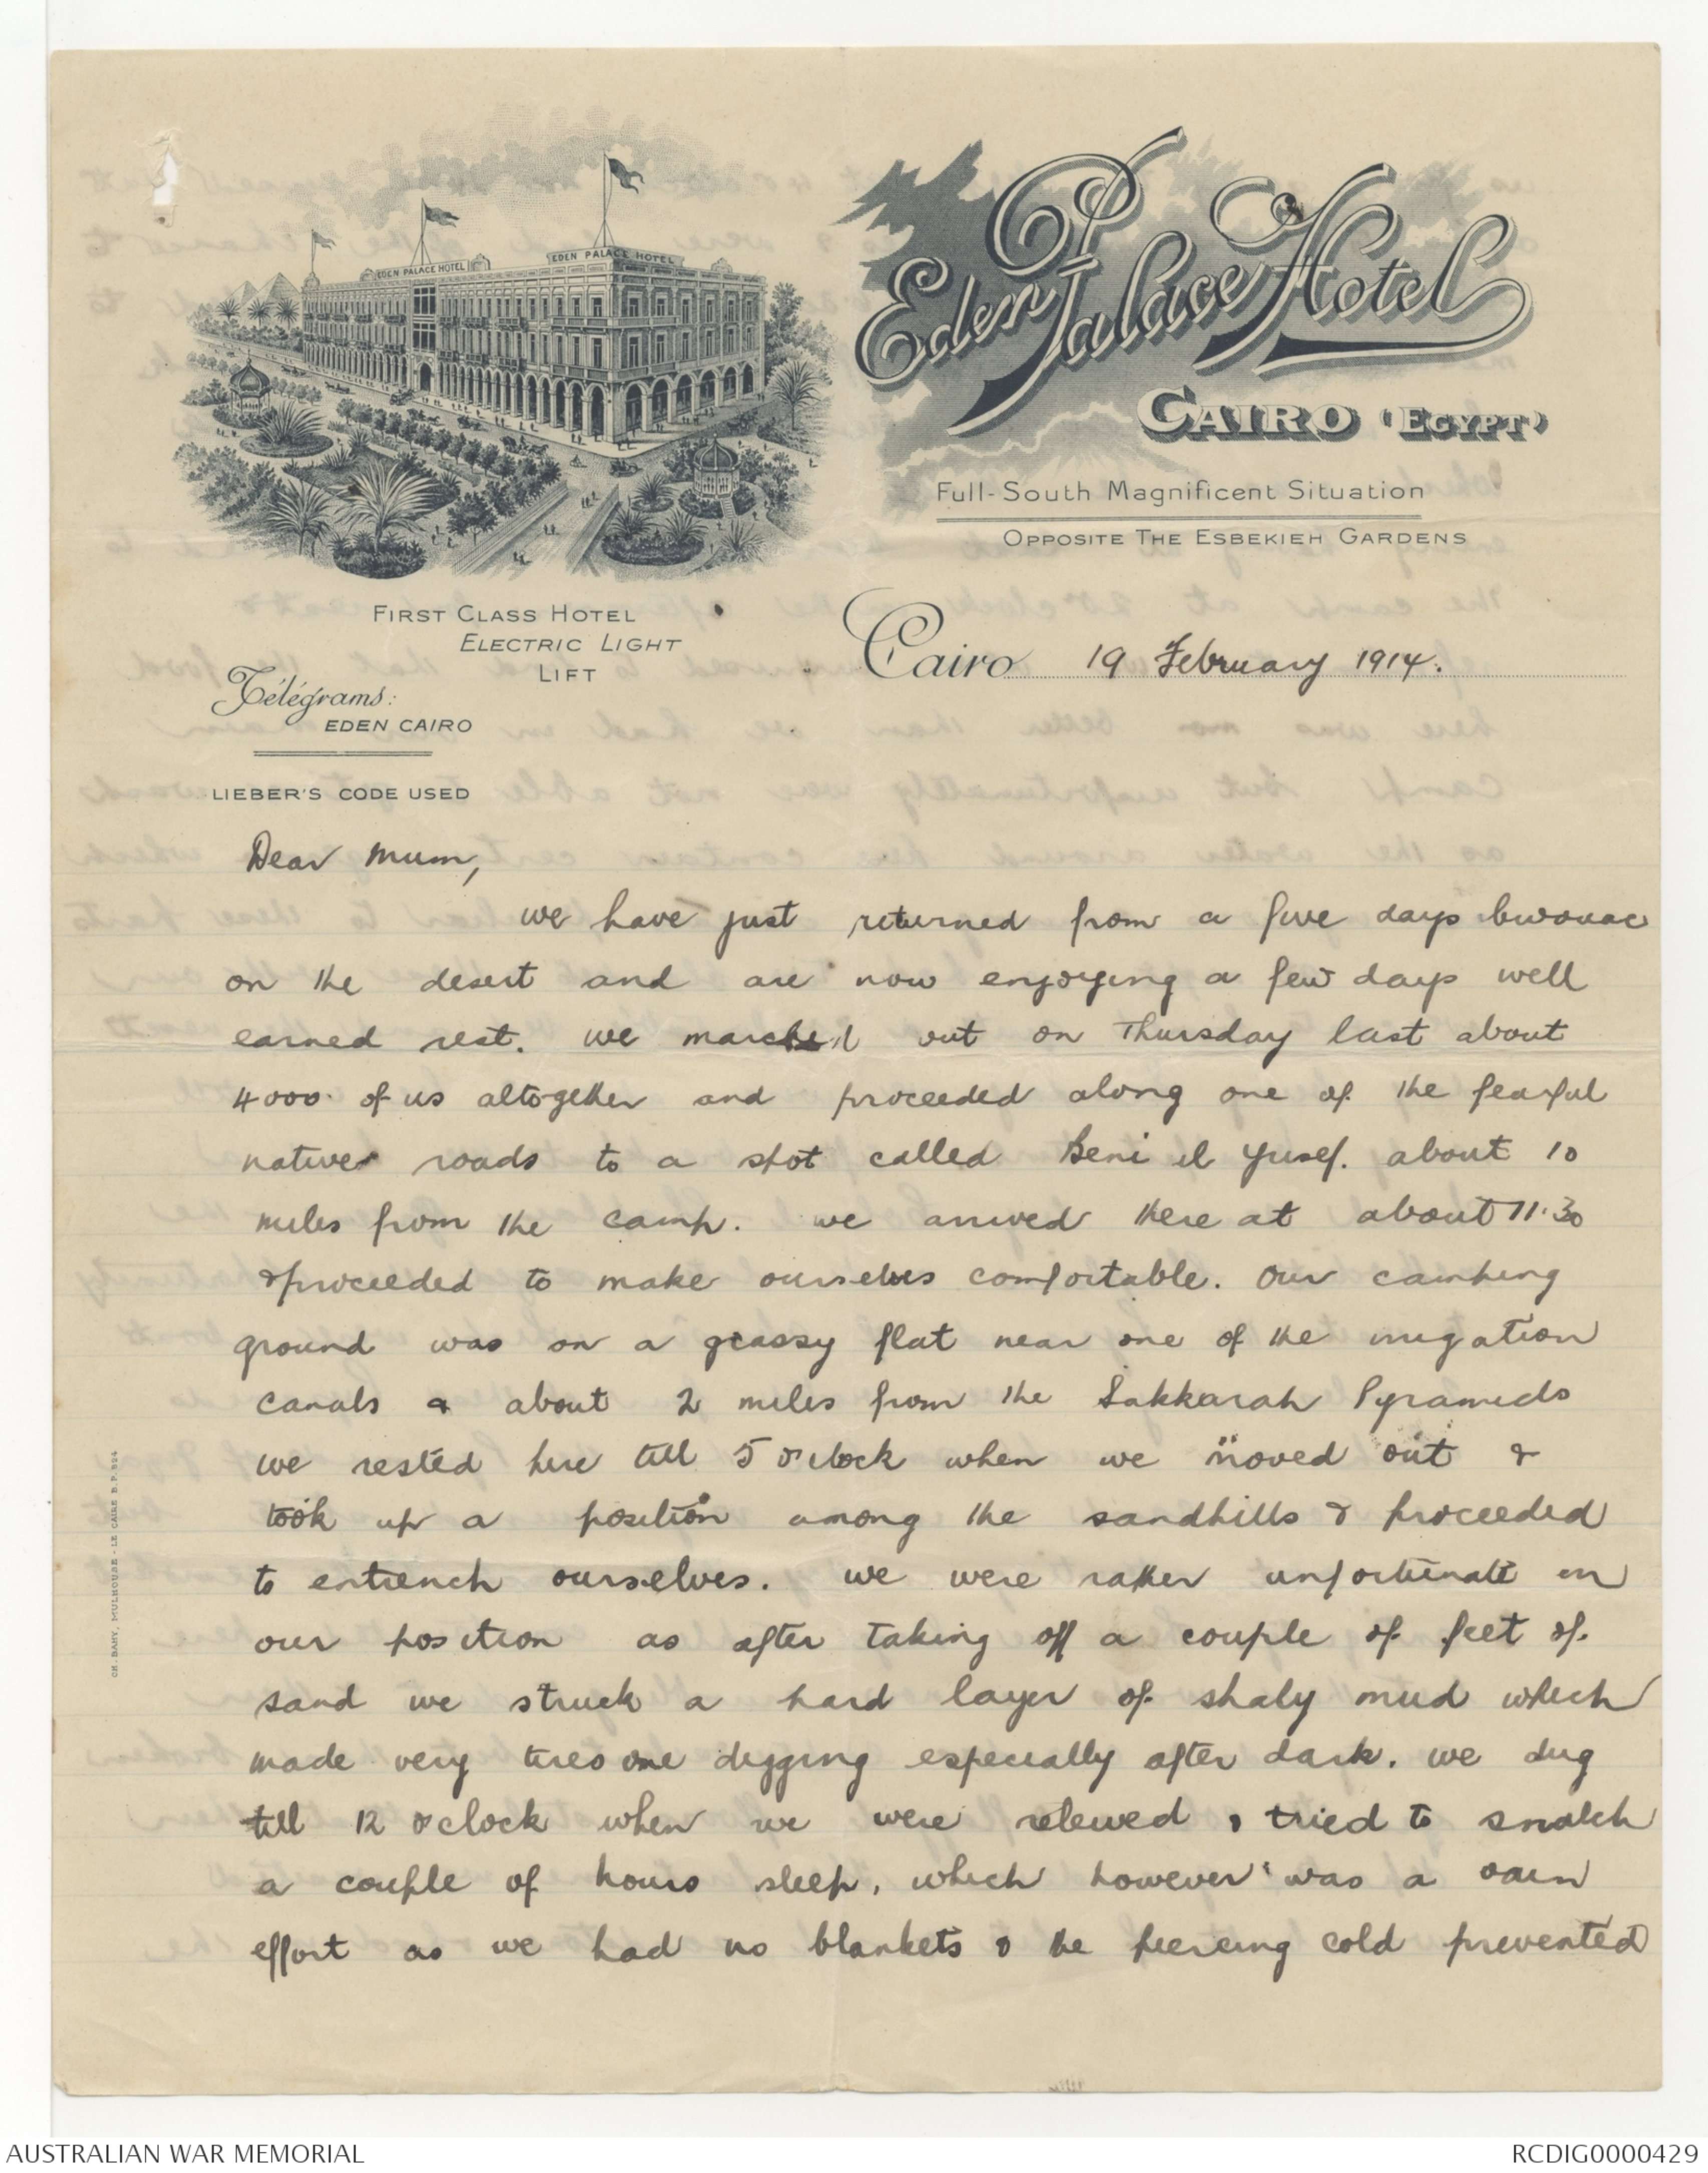 EDEN PALACE HOTEL
EDEN PALACE HOTEL
Eden Palace Hotel
CAIRO (EGYPT)
Full-South Magnificent Situation
OPPOSITE THE ESBEKIEH GARDENS
FIRST CLASS HOTEL
ELECTRIC LIGHT
LIFT
Télégrams:
EDEN CAIRO
LIEBER'S CODE USED
Cairo 19 February 1914.
Dear Mum,
we have just returned from a five days bivouac
on the desert and are now enjoying a few days well
earned rest. we marched out on Thursday last about
4000 of us altogether and proceeded along one of the fearful
native roads to a spot called Beni el Yusef. about 10
miles from the camp. we arrived there at about 11.30
& proceeded to make ourselves comfortable. Our camping
ground was on a grassy flat near one of the irrigation
canals & about 2 miles from the Sakkarah Pyramids
we rested here till 5 o'clock when we moved out &
took up a position among the sandhills & proceeded
to entrench ourselves. we were rather unfortunate in
our position as after taking off a couple of feet of
sand we struck a hard layer of shaly mud which
made very tiresome digging especially after dark. we dug
till 12 o'clock when we were relieved & tried to snatch
a couple of hours sleep, which however was a vain
effort as we had no blankets & the piercing cold prevented
CH. BAHY, MULHOUSE - LE CAIRE B.P. 924
AUSTRALIAN WAR MEMORIAL
RCDIG0000429